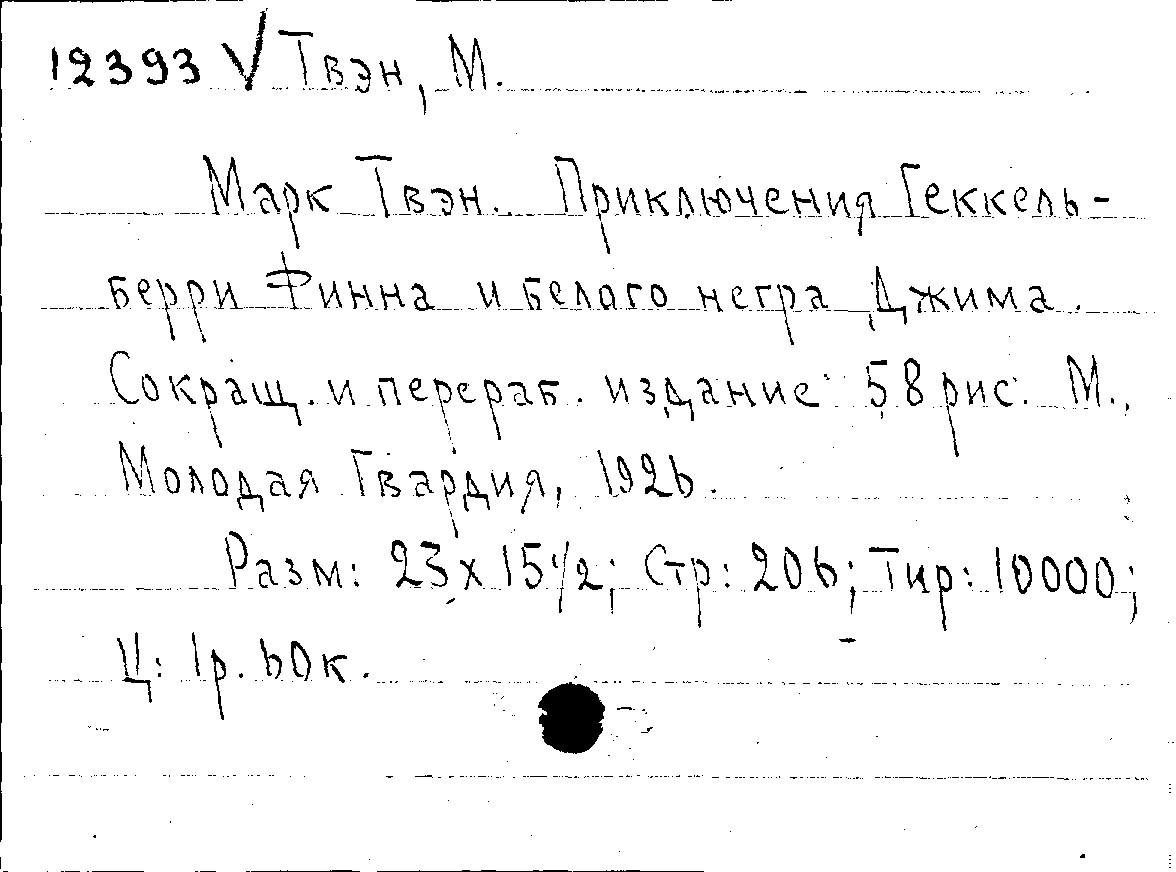 12393 V Твэн, М.
Марк Твэн. Приключения Геккель-
берри Финна и белого негра Джима.
Сокращ. и перераб. издание 58 рис. М.,
Молодая Гвардия, 1926.
Разм: 23 x 15 1/2; Стр: 206; Тир: 10000;
Ц: 1р. 60к.